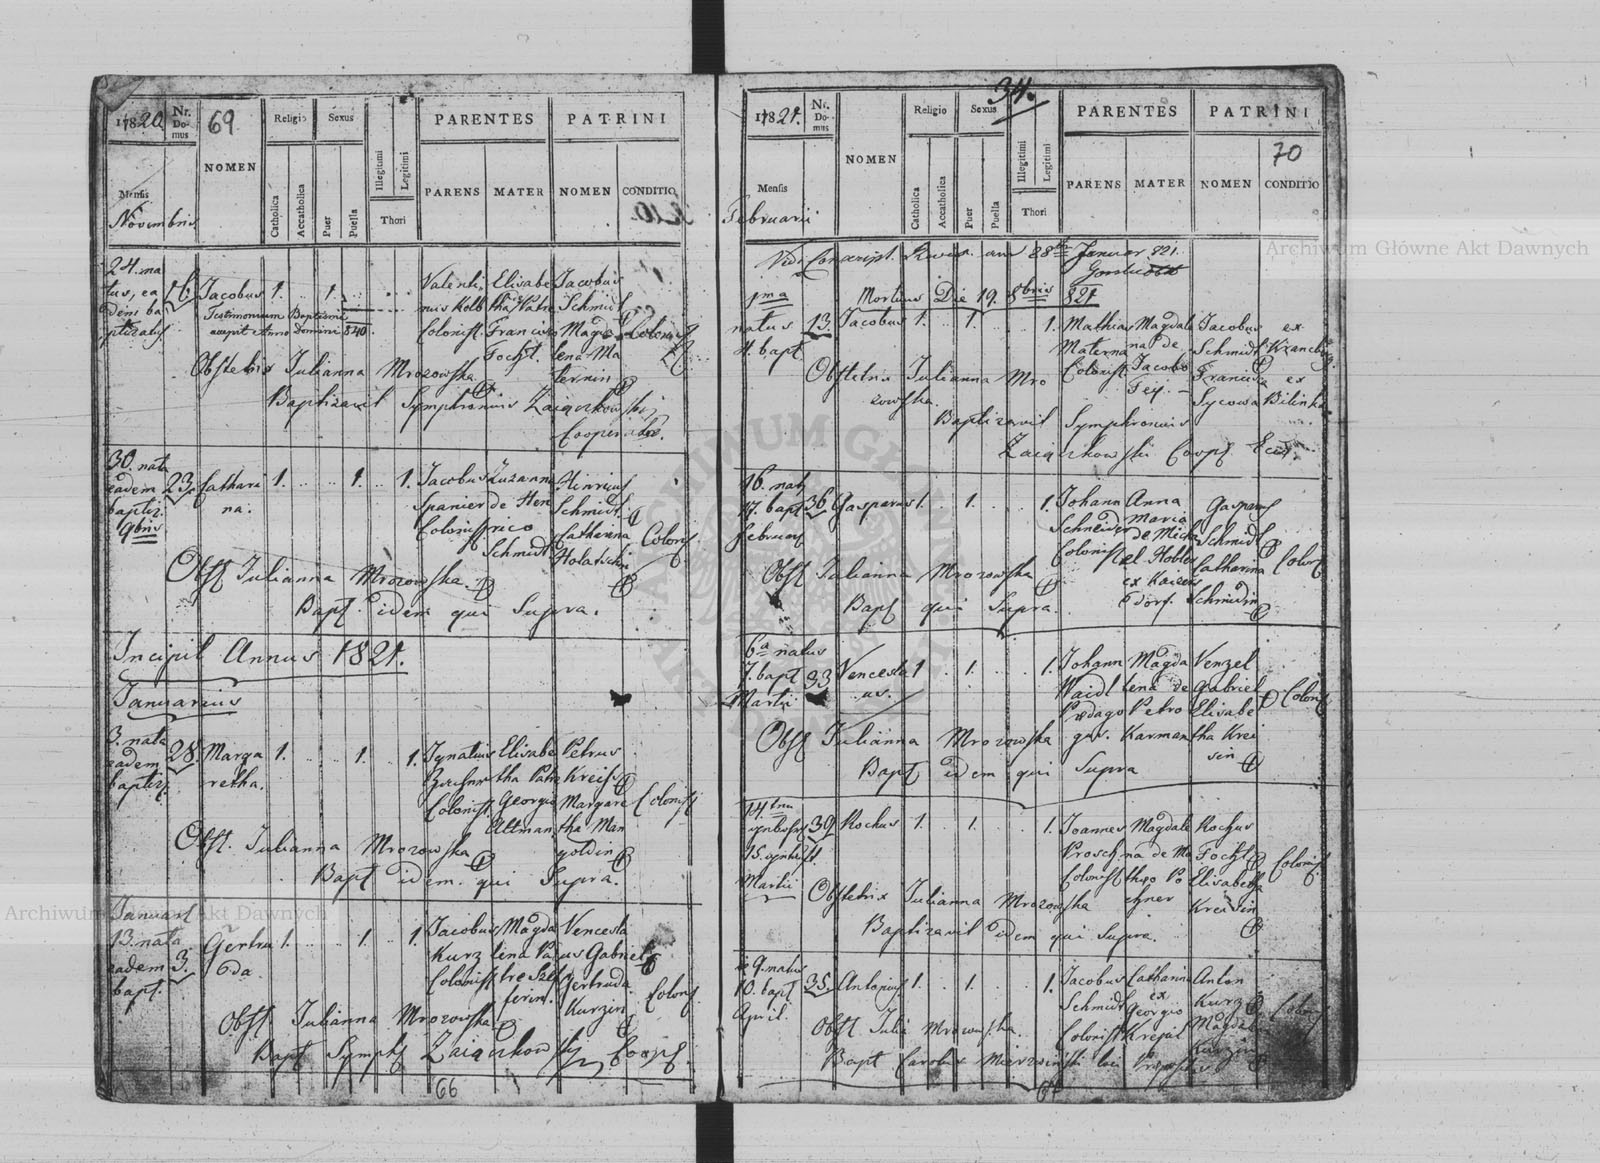 1820
Nr. Domus
69
NOMEN
Religio
Sexus
Catholica
Accatholica
Puer
Puella
Illegitimi
Legitimi
Thori
PARENTES
PATRINI
PARENS
MATER
NOMEN
CONDITIO
Mensis
Novembris
24. na
tus, ea
dem ba
ptizatus
16.
Jacobus
1.
1.
Testimonium Baptismi
accepit Anno Domini 840.
Valenti
nus Kolb
Colonist.
Elisabe
tha Patre
Francisco
Focht.
Jacobus
Schmidt
Magda
lena Ma
ternin
Colonist
Obstetrix Julianna Mrozowska
Baptizavit Symphronius Zaiączkowski
Cooperator.
30. nata
eadem
baptiz.
9bris
23.
Cathari
na.
1.
1.
1.
Jacobus
Spanier
Colonist
Zuzanna
de Hen
rico
Schmidt
Hinricus
Schmidt
Catharina
Colonist
Obst Julianna Mrozowska
Bapt. idem qui Supra.
Incipit Annus 1821.
Januarius
3. nata
eadem
baptiz.
28.
Marga
retha.
1.
1.
1.
Ignatius
Colonist.
Elisabe
tha Patre
Georgio
Altman
Petrus
Kreiss
Margare
tha Man
goldin
Colonist
Obst. Julianna Mrozowska
Bapt idem qui Supra.
Januari
13. nata
eadem
bapt.
3.
Gertru
da
1.
1.
1.
Jacobus
Kurz
Colonist
Magda
lena Pa
tre
Vencesla
us Gabriel
Gertruda
Kurzin
Colonist
Obst. Julianna Mrozowska
Bapt Symph Zaiączkowski Coop.
66
34.
1821.
Nr. Domus
NOMEN
Religio
Sexus
Catholica
Accatholica
Puer
Puella
Illegitimi
Legitimi
Thori
PARENTES
PATRINI
70
PARENS
MATER
NOMEN
CONDITIO
Mensis
Februarii
Januar 821.
Mortuus Die 19. 8bris 821
1ma
natus
4. bapt
13.
Jacobus
1.
1.
1.
Mathias
Materna
Colonist
Magdale
na de
Jacobo
Fey.
Jacobus
Schmidt
Francisca
Sycowa
ex
ex
Bilinka
Obstetrix Julianna Mro
zowska.
Baptizavit Symphronius
Zaiączkowski Coop Eccl.
16. nat
17. bapt
Februar
36
Gasparus
1.
1.
1.
Johann
Schneider
Colonist
Anna
Maria
de Micha
el Hobler
ex Kaisers
dorf.
Gasparus
Schmidt
Catharina
Schmidin
Colonist
Obst Julianna Mrozowska
Bapt qui Supra.
6a natus
7. bapt
Martii
33
Vencesla
us.
1.
1.
1.
Johann
Waidl
Pedago
gus.
Magda
lena de
Petro
Karman
Venzel
Gabriel
Elisabe
tha Krei
sin
Colonist
Obst Julianna Mrozowska
Bapt idem qui Supra
14.
15.
Martii
39
Rochus
1.
1.
1.
Joannes
Prosch
Colonist
Magdale
na de Ma
theo Po
chner
Rochus
Focht
Elisabetha
Kreisin
Colonist
Obstetrix Julianna Mrozowska
Baptizavit idem qui Supra.
9. natus
10. bapt
April.
35.
Antonius
1.
1.
1.
Jacobus
Schmidt
Colonist
Catharina
ex
Georgio
Anton
Kurz
Magdal
Colonist
Obst Julia Mrozowska.
Bapt Carolus
Archiwum Główne Akt Dawnych
Archiwum Główne Akt Dawnych